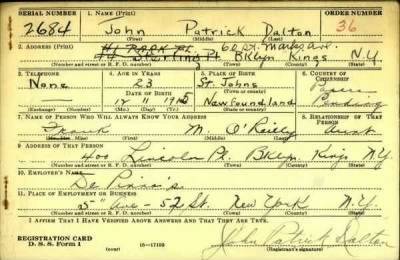 SERIAL NUMBER 1. NAME (Print) ORDER NUMBER
2684 John Patrick Dalton 36
(First) (Middle) (Last)
2. ADDRESS (Print) 60 St. Marks ave.
Sterling Pl Bklyn Kings N.Y.
(Number and street or R. F. D. number) (Town) (County) (State)
3. TELEPHONE 4. AGE IN YEARS 5. PLACE OF BIRTH 6. COUNTRY OF CITIZENSHIP
None 23 St. Johns Papers
DATE OF BIRTH (Town or county)
12 11 1915 Newfoundland Pending
(Exchange) (No.) (Mo.) (Day) (Yr.) (State or country)
7. NAME OF PERSON WHO WILL ALWAYS KNOW YOUR ADDRESS 8. RELATIONSHIP OF THAT PERSON
Frank M. O'Reilly Aunt
(Mr., Mrs., Miss) (First) (Middle) (Last)
9. ADDRESS OF THAT PERSON
400 Lincoln Pl. Bklyn Kings N.Y.
(Number and street or R. F. D. number) (Town) (County) (State)
10. EMPLOYER'S NAME
De Pinna's
11. PLACE OF EMPLOYMENT OR BUSINESS
5th Ave - 52 St. New York N.Y.
(Number and street or R. F. D. number) (Town) (County) (State)
I AFFIRM THAT I HAVE VERIFIED ABOVE ANSWERS AND THAT THEY ARE TRUE.
REGISTRATION CARD
D. S. S. Form 1 (over) 16—17105
John Patrick Dalton
(Registrant's signature)